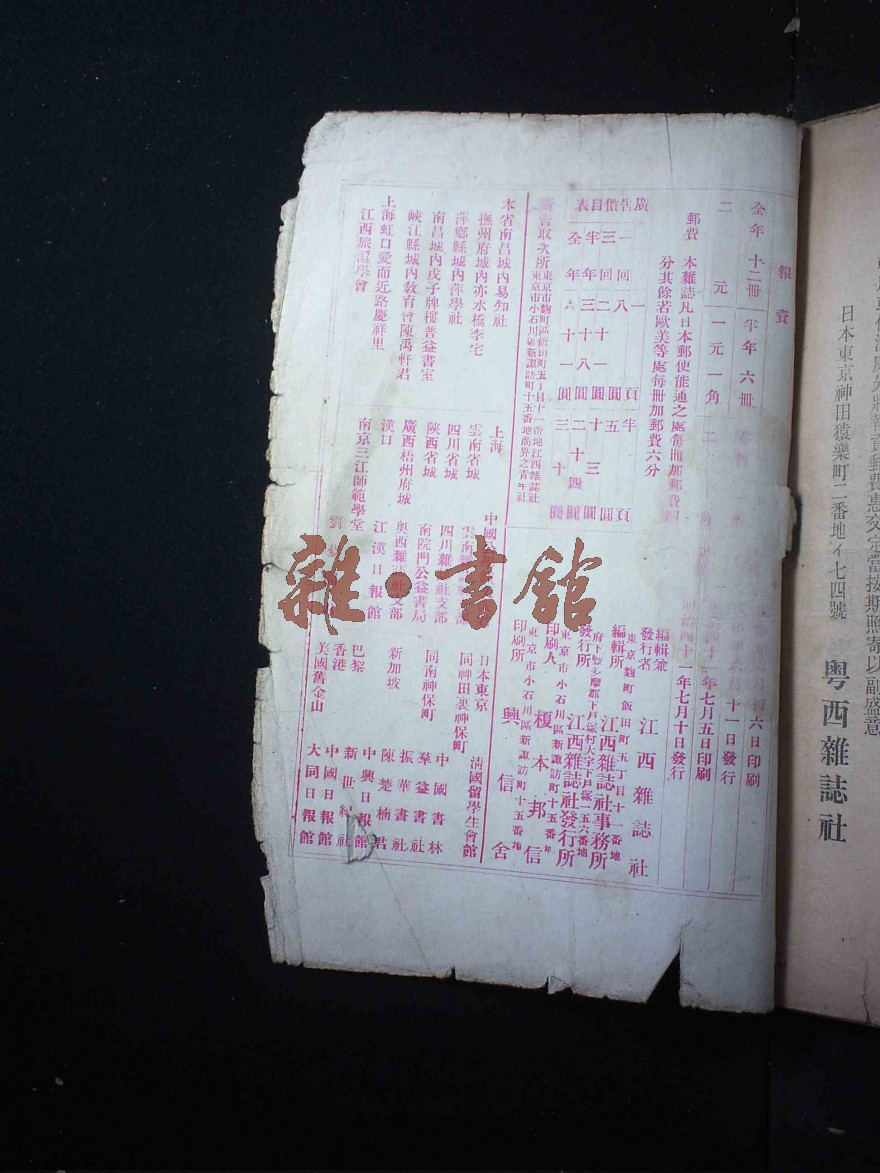 日本東京神田猿樂町二番地イ七四號
粵西雜誌社
報資
全年十二冊
半年六冊
二元
一元一角
郵費
本雜誌凡日本郵使能通之處每冊加郵費
分其餘若歐美等處每冊加郵費六分
廣告價目表
一頁
半頁
一回
八圓
五圓
三回
二十一圓
十三圓
半年
三十八圓
二十四圓
全年
六十一圓
三十圓
廣告取次所
東京市麴町區飯田町五丁目十一番地江西雜誌社
東京市小石川區新諏訪町十五番地商界之青年社
六日印刷
六月十一日發行
七月五日印刷
明治四十一年七月十日發行
編輯兼發行者
江西雜誌社
編輯所
東京麴町飯田町五丁目十一番地
江西雜誌社事務所
發行所
江西雜誌社發行所
印刷人
東京市小石川區新諏訪町十五番地
榎本邦信
印刷所
東京市小石川區新諏訪町十五番地
興信舍
本省南昌城內易知社
撫州府城內亦水橋李宅
萍鄉縣城內萍學社
南昌城內戊子牌樓普益書室
峽江縣城內教育會陳禹軒君
上海虹口愛而近路慶祥里
江西旅滬學會
上海
中國公
雲南省城
雲南
四川省城
四川雜誌社支部
陝西省城
南院門公益書局
廣西梧州府城
粵西雜誌社支部
漢口
江漢日報館
南京三江師範學堂
劉
日本東京
清國留學生會館
同神田裏神保町
中國書林
同南神保町
羣益書社
振華書社
新加坡
陳楚楠君
中興日報館
巴黎
新世紀社
香港
中國日報館
美國舊金山
大同日報館
雜·書館